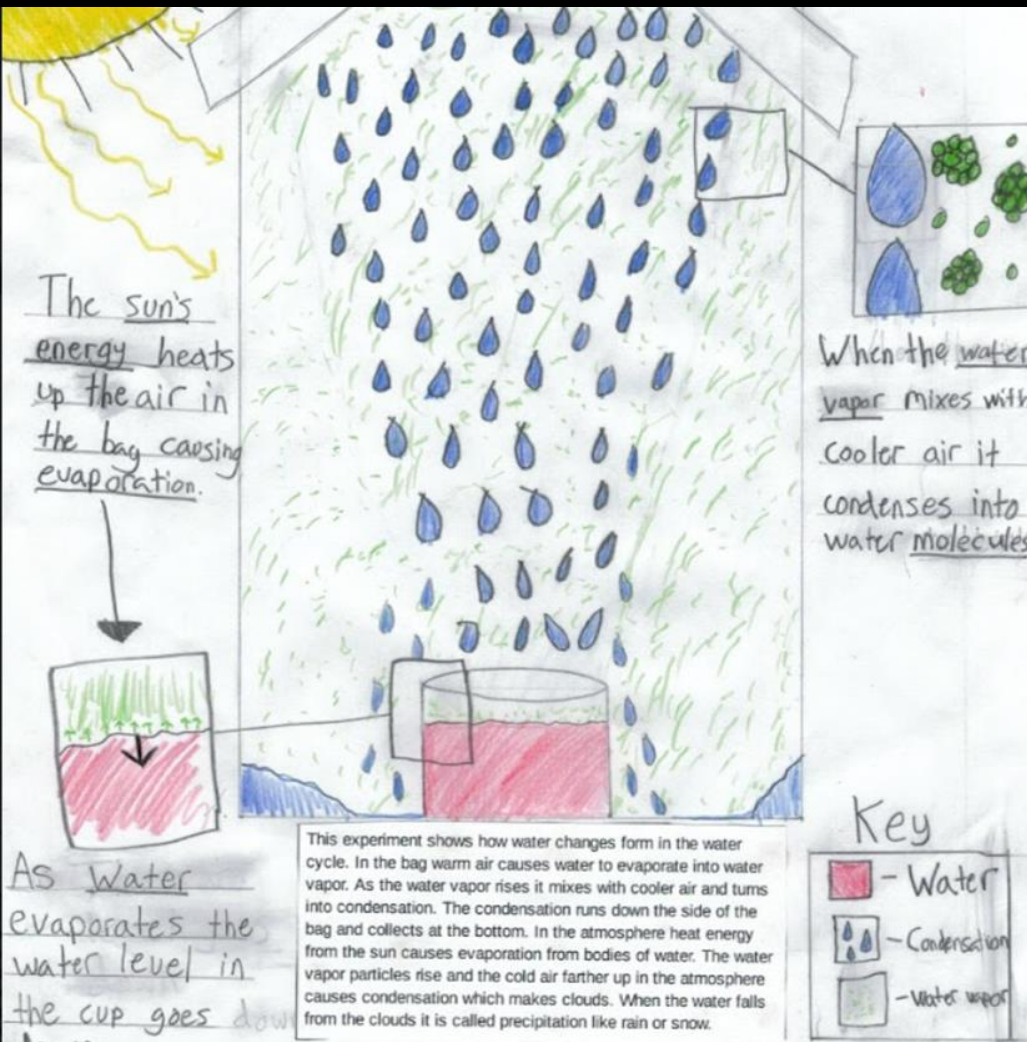 The sun's
energy heats
up the air in
the bag causing
evaporation.
When the water
vapor mixes with
cooler air it
condenses into
water molecules
As Water
evaporates the
water level in
the cup goes down
This experiment shows how water changes form in the water
cycle. In the bag warm air causes water to evaporate into water
vapor. As the water vapor rises it mixes with cooler air and turns
into condensation. The condensation runs down the side of the
bag and collects at the bottom. In the atmosphere heat energy
from the sun causes evaporation from bodies of water. The water
vapor particles rise and the cold air farther up in the atmosphere
causes condensation which makes clouds. When the water falls
from the clouds it is called precipitation like rain or snow.
Key
- Water
- Condensation
- Water vapor